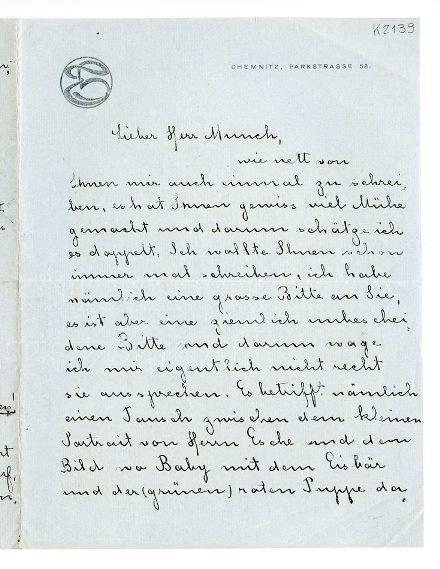 K2139
CHEMNITZ, PARKSTRASSE 58.
Lieber Herr Munch,
wie nett von
Ihnen mir auch einmal zu schrei-
ben, es hat Ihnen gewiss viel Mühe
gemacht und darum schätze ich
es doppelt. Ich wollte Ihnen schon
immer mal schreiben, ich habe
nämlich eine grosse Bitte an Sie,
es ist aber eine ziemlich unbeschei-
dene Bitte und darum wage
ich mir eigentlich nicht recht
sie aussprechen. Es betrifft nämlich
einen Tausch zwischen dem kleinen
Portrait von Herrn Esche und dem
Bild wo Baby mit dem Eisbär
und der (grünen) roten Puppe da-